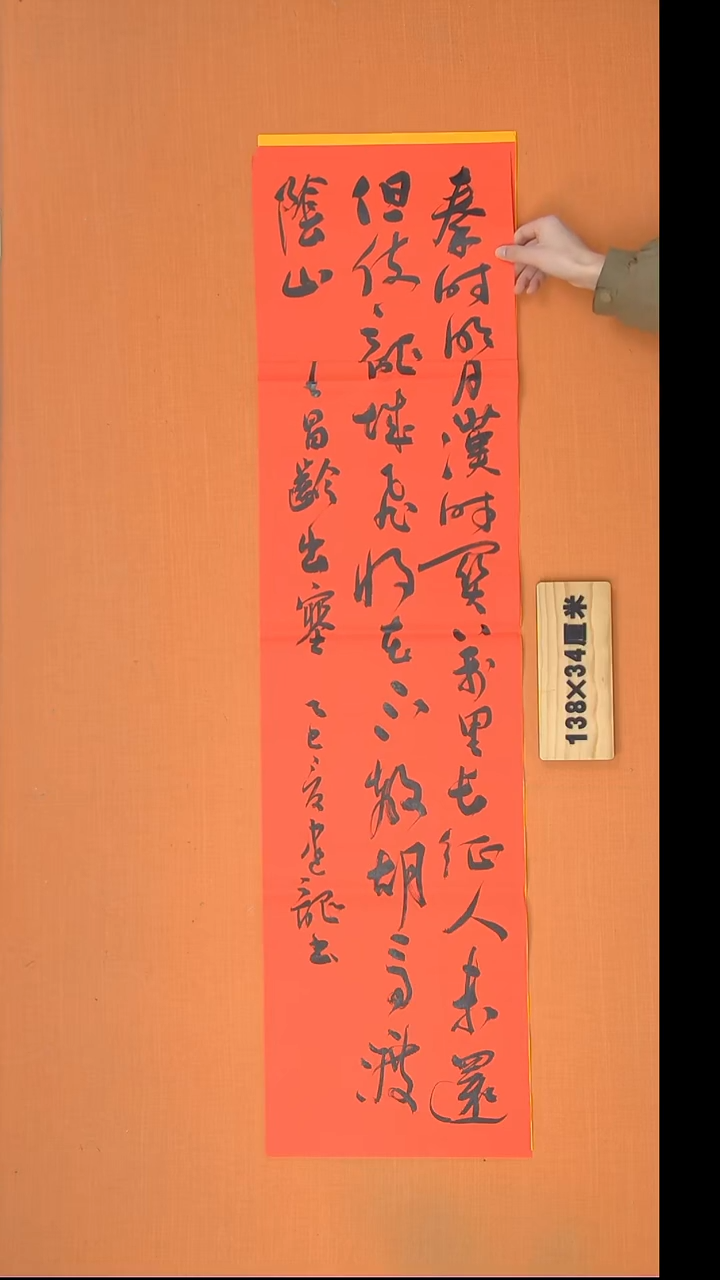 秦時明月漢時關萬里長征人未還
但使龍城飛將在不教胡馬渡
陰山 王昌齡出塞 乙巳 龍書
138×34厘米